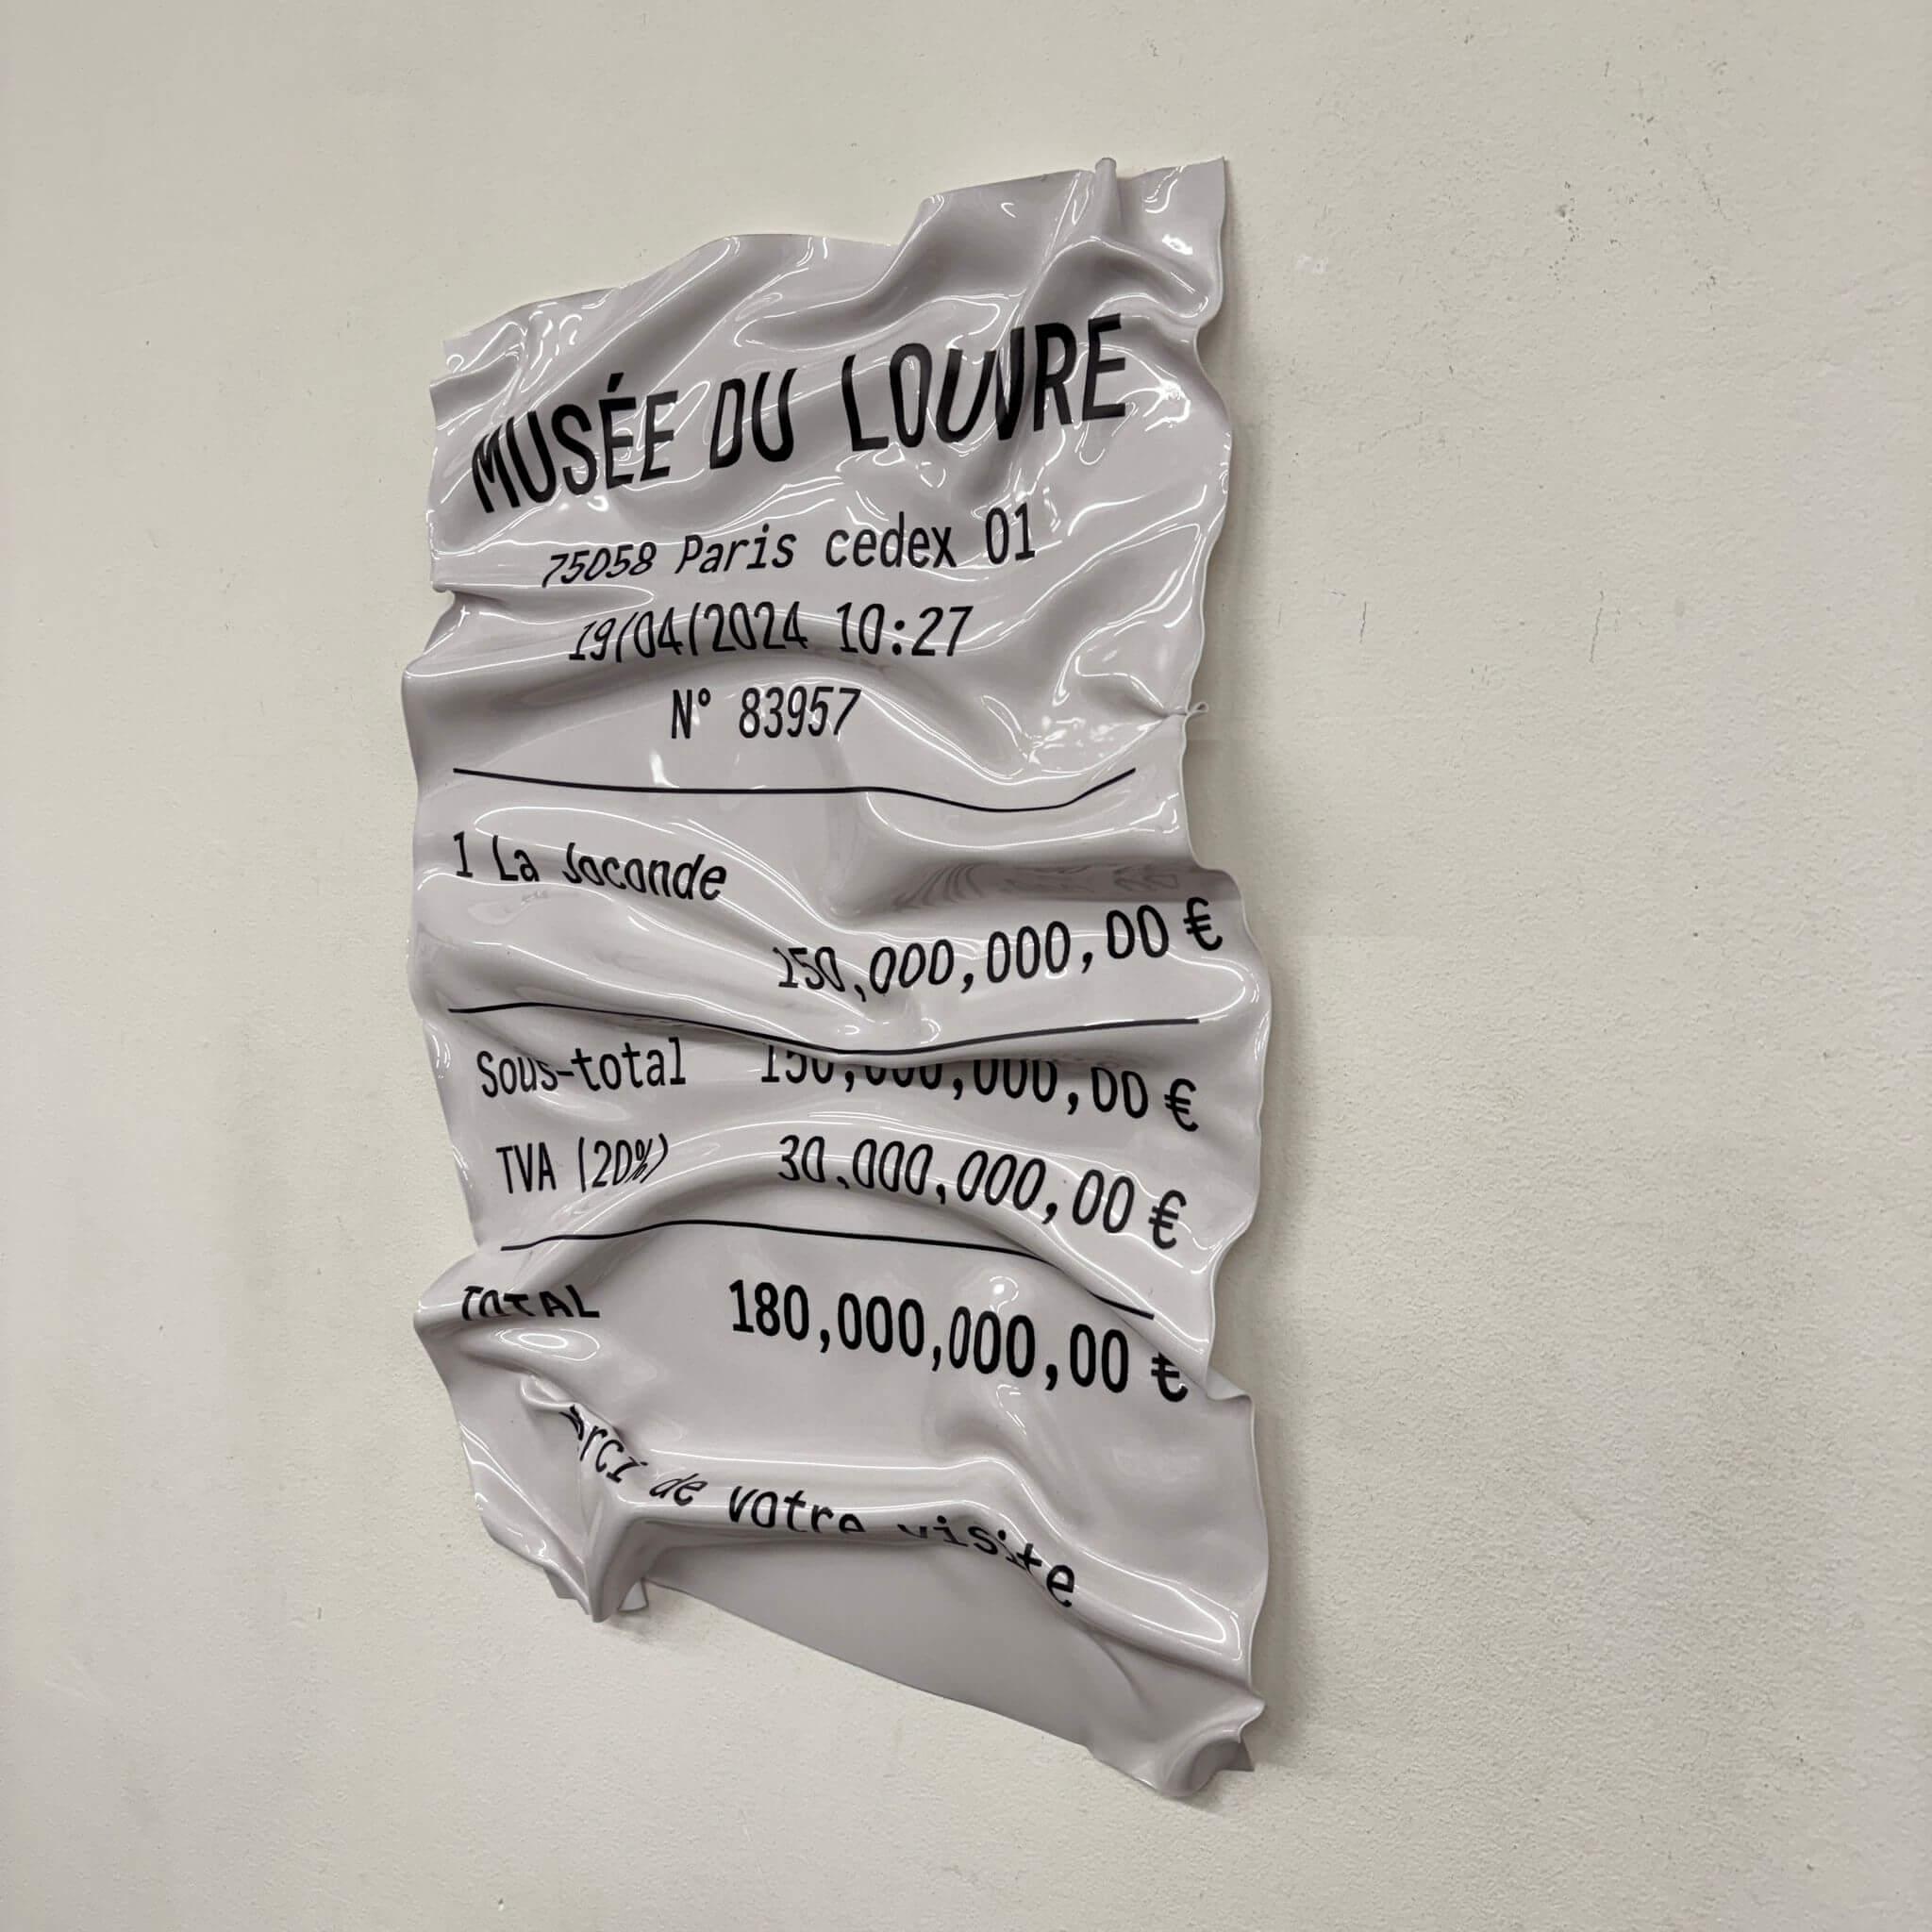 MUSÉE DU LOUVRE
75058 Paris cedex 01
19/04/2024 10:27
N° 83957
1 La Joconde
150,000,000,00 €
Sous-total 150,000,000,00 €
TVA (20%) 30,000,000,00 €
TOTAL 180,000,000,00 €
Merci de votre visite